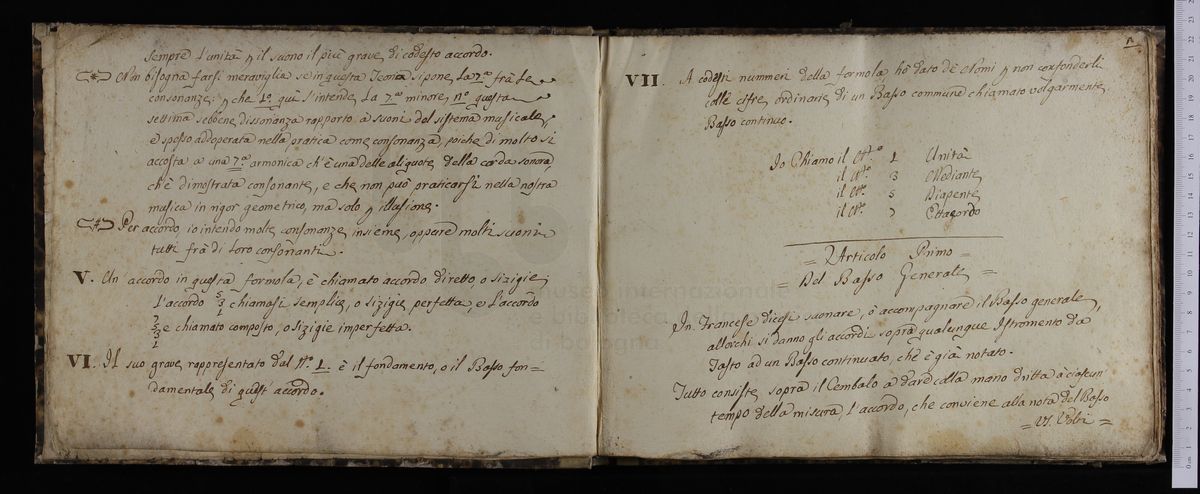 sempre l'unità p il suono il più grave di codesto accordo.
Non bisogna farsi meraviglia se in questa Teoria si pone la 7.a frà le
consonanze: p che 1.o quì s'intende la 7.a minore, n.o questa
settima sebene dissonanza rapporto à suoni del sistema musicale,
è spesso addoperata nella pratica come consonanza, poiche di molto si
accosta a una 7.a armonica ch'è una delle aliquote della corda sonora,
ch'è dimostrata consonante, e che non può praticarsi nella nostra
musica in rigor geometrico, ma solo p illusione.
Per accordo io intendo molte consonanze insieme, oppure molti suoni
tutti frà di loro consonanti.
V. Un accordo in questa formola, è chiamato accordo diretto, o sizigie;
L'accordo 5 3 1 chiamasi semplice, o sizigie perfetta, e l'accordo
7 5 3 1 e chiamato composto, o sizigie imperfetta.
VI. Il suo grave rappresentato dal N.o 1. è il fondamento, o il Basso fon=
damentale di questi accordo.
VII. A codesti nummeri della formola hò dato dè Nomi p non confonderli
colle cifre ordinarie di un Basso commune chiamato volgarmente
Basso continuo.
Io Chiamo il N.o 1 Unità
il N.o 3 Mediante
il N.o 5 Diapente
il N.o 7 Ettacordo
= Articolo Primo =
= Del Basso Generale =
In Francese dicesi suonare, ò accompagnare il Basso generale,
allorchi si danno gli accordi sopra qualunque Istromento da
Tasto ad un Basso continuato, che è già notato.
Tutto consiste sopra il Cembalo a dare colla mano dritta à ciascun
tempo della misura, l'accordo, che conviene alla nota del Basso
= V. Volti =
museo internazionale
e biblioteca
di bologna